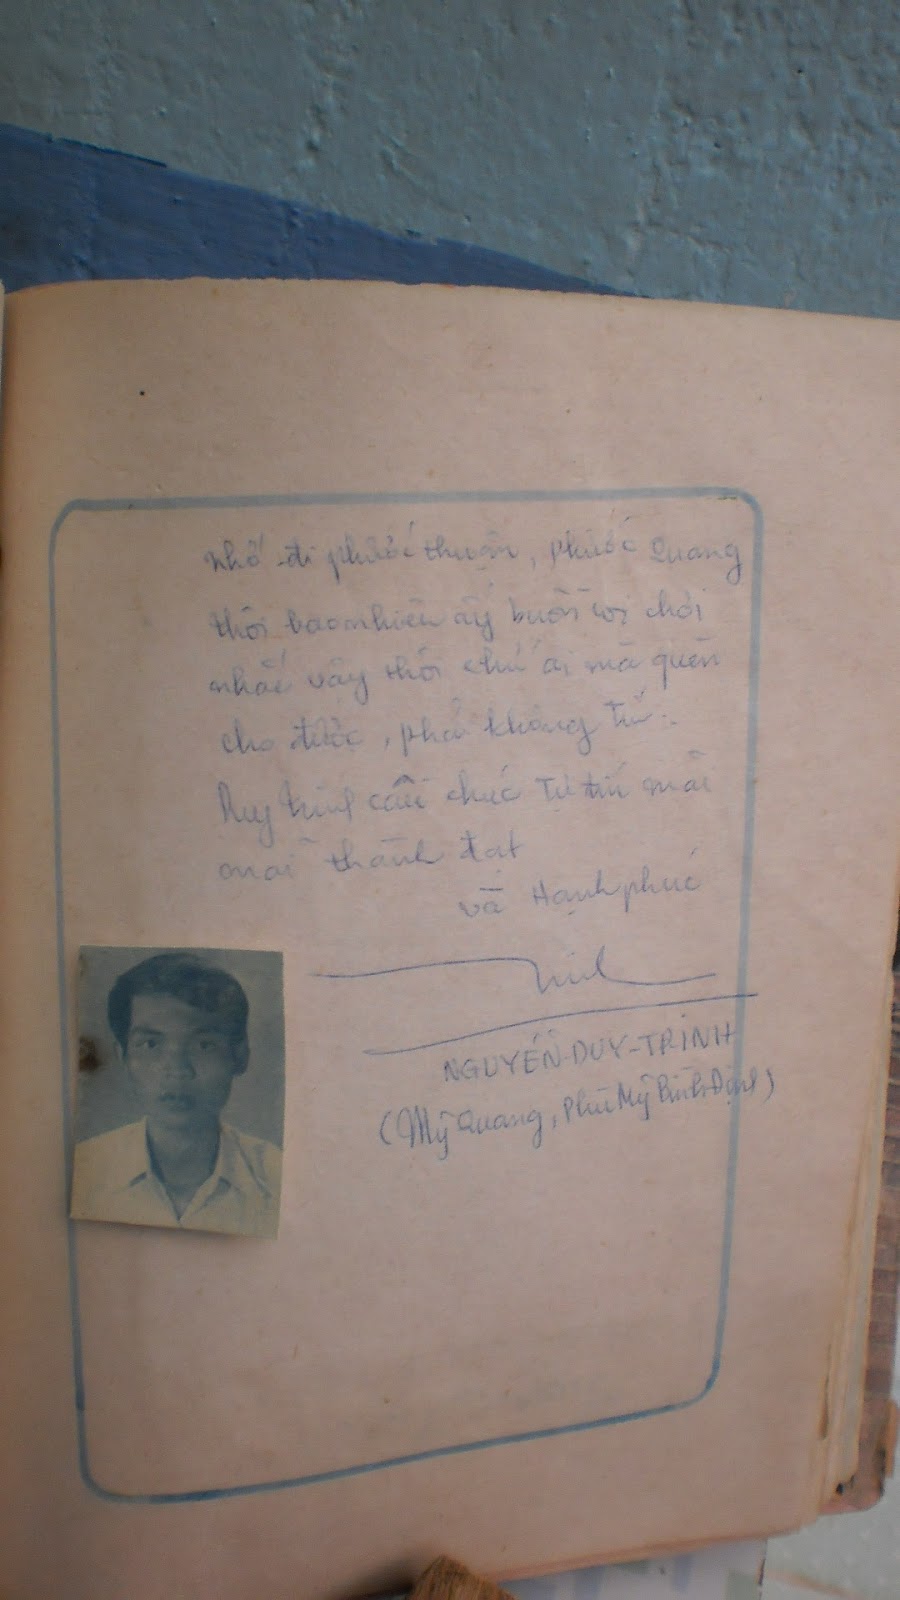 Nhớ đi phước thuận, phước Quang
thôi bao nhiêu ấy buồn cọi chơi
nhắc vậy thôi chứ ai mà quên
cho được, phải không Tú..
Duy Trinh cầu chúc Tú mãi
mãi thành đạt
và Hạnh phúc
NGUYỄN-DUY-TRINH
(Mỹ Quang, Phù Mỹ Bình Định)